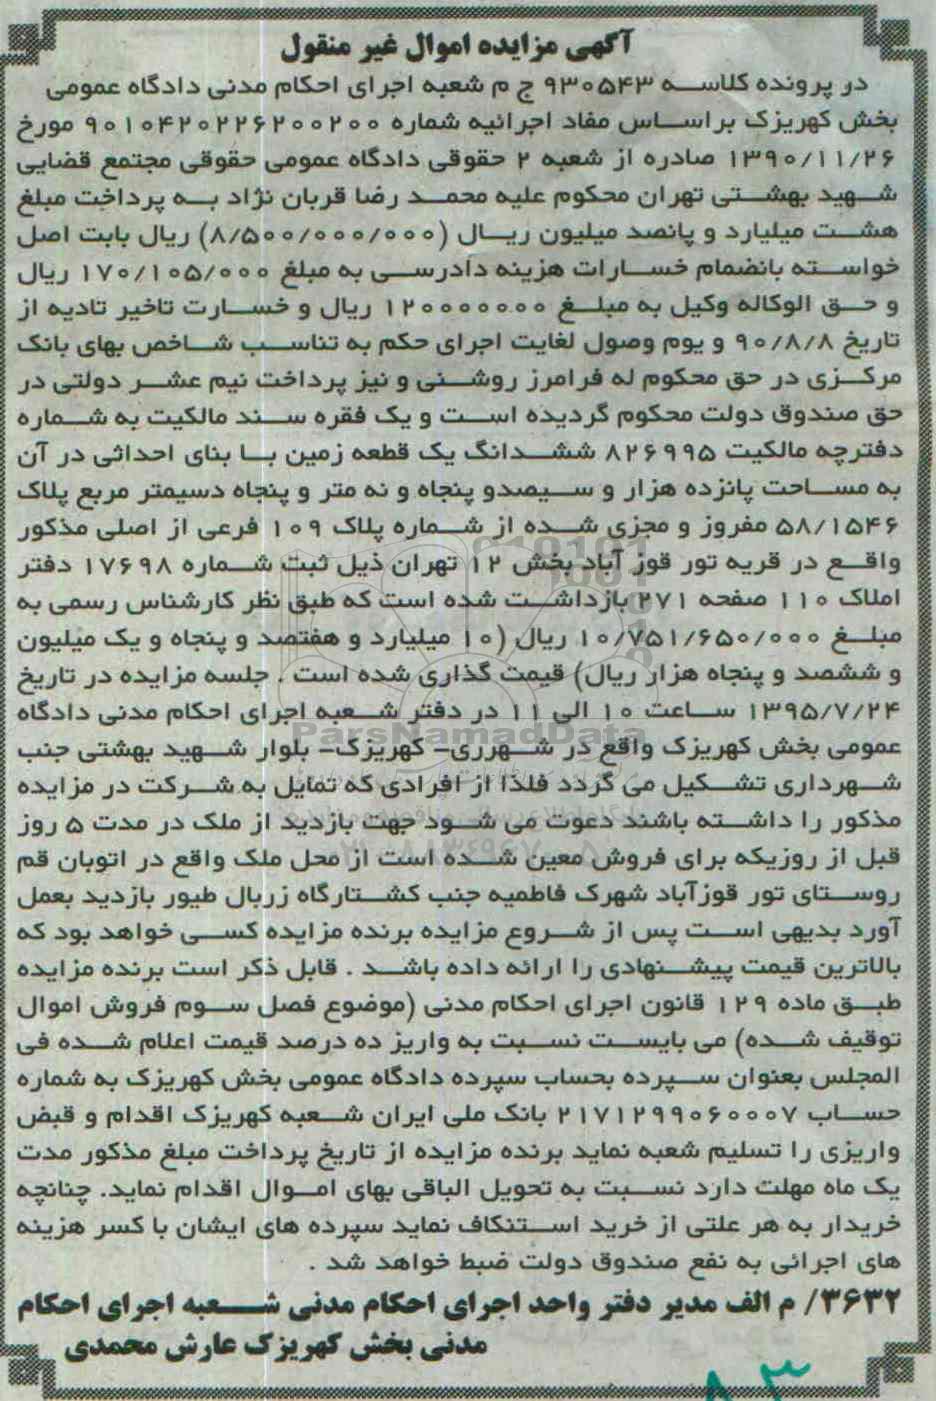 آگهی مزایده اموال غیر منقول
در پرونده کلاسه ۹۳۰۵۴۳ ج م شعبه اجرای احکام مدنی دادگاه عمومی
بخش کهریزک براساس مفاد اجرائیه شماره ۹۰۱۰۴۲۰۲۲۶۲۰۰۲۰۰ مورخ
۱۳۹۰/۱۱/۲۶ صادره از شعبه ۲ حقوقی دادگاه عمومی حقوقی مجتمع قضایی
شهید بهشتی تهران محکوم علیه محمد رضا قربان نژاد به پرداخت مبلغ
هشت میلیارد و پانصد میلیون ریال (۸/۵۰۰/۰۰۰/۰۰۰) ریال بابت اصل
خواسته بانضمام خسارات هزینه دادرسی به مبلغ ۱۷۰/۱۰۵/۰۰۰ ریال
و حق الوکاله وکیل به مبلغ ۱۲۰۰۰۰۰۰۰ ریال و خسارت تاخیر تادیه از
تاریخ ۹۰/۸/۸ و یوم وصول لغایت اجرای حکم به تناسب شاخص بهای بانک
مرکزی در حق محکوم له فرامرز روشنی و نیز پرداخت نیم عشر دولتی در
حق صندوق دولت محکوم گردیده است و یک فقره سند مالکیت به شماره
دفترچه مالکیت ۸۲۶۹۹۵ ششدانگ یک قطعه زمین با بنای احداثی در آن
به مساحت پانزده هزار و سیصدو پنجاه و نه متر و پنجاه دسیمتر مربع پلاک
۵۸/۱۵۴۶ مفروز و مجزی شده از شماره پلاک ۱۰۹ فرعی از اصلی مذکور
واقع در قریه تور قوز آباد بخش ۱۲ تهران ذیل ثبت شماره ۱۷۶۹۸ دفتر
املاک ۱۱۰ صفحه ۲۷۱ بازداشت شده است که طبق نظر کارشناس رسمی به
مبلغ ۱۰/۷۵۱/۶۵۰/۰۰۰ ریال (۱۰ میلیارد و هفتصد و پنجاه و یک میلیون
و ششصد و پنجاه هزار ریال) قیمت گذاری شده است . جلسه مزایده در تاریخ
۱۳۹۵/۷/۲۴ ساعت ۱۰ الی ۱۱ در دفتر شعبه اجرای احکام مدنی دادگاه
عمومی بخش کهریزک واقع در شهرری- کهریزک- بلوار شهید بهشتی جنب
شهرداری تشکیل می گردد فلذا از افرادی که تمایل به شرکت در مزایده
مذکور را داشته باشند دعوت می شود جهت بازدید از ملک در مدت ۵ روز
قبل از روزیکه برای فروش معین شده است از محل ملک واقع در اتوبان قم
روستای تور قوزآباد شهرک فاطمیه جنب کشتارگاه زربال طیور بازدید بعمل
آورد بدیهی است پس از شروع مزایده برنده مزایده کسی خواهد بود که
بالاترین قیمت پیشنهادی را ارائه داده باشد . قابل ذکر است برنده مزایده
طبق ماده ۱۲۹ قانون اجرای احکام مدنی (موضوع فصل سوم فروش اموال
توقیف شده) می بایست نسبت به واریز ده درصد قیمت اعلام شده فی
المجلس بعنوان سپرده بحساب سپرده دادگاه عمومی بخش کهریزک به شماره
حساب ۲۱۷۱۲۹۹۰۶۰۰۰۷ بانک ملی ایران شعبه کهریزک اقدام و قبض
واریزی را تسلیم شعبه نماید برنده مزایده از تاریخ پرداخت مبلغ مذکور مدت
یک ماه مهلت دارد نسبت به تحویل الباقی بهای اموال اقدام نماید. چنانچه
خریدار به هر علتی از خرید استنکاف نماید سپرده های ایشان با کسر هزینه
های اجرائی به نفع صندوق دولت ضبط خواهد شد .
۳۶۳۲/ م الف مدیر دفتر واحد اجرای احکام مدنی شعبه اجرای احکام
مدنی بخش کهریزک عارش محمدی
ParsNamadData